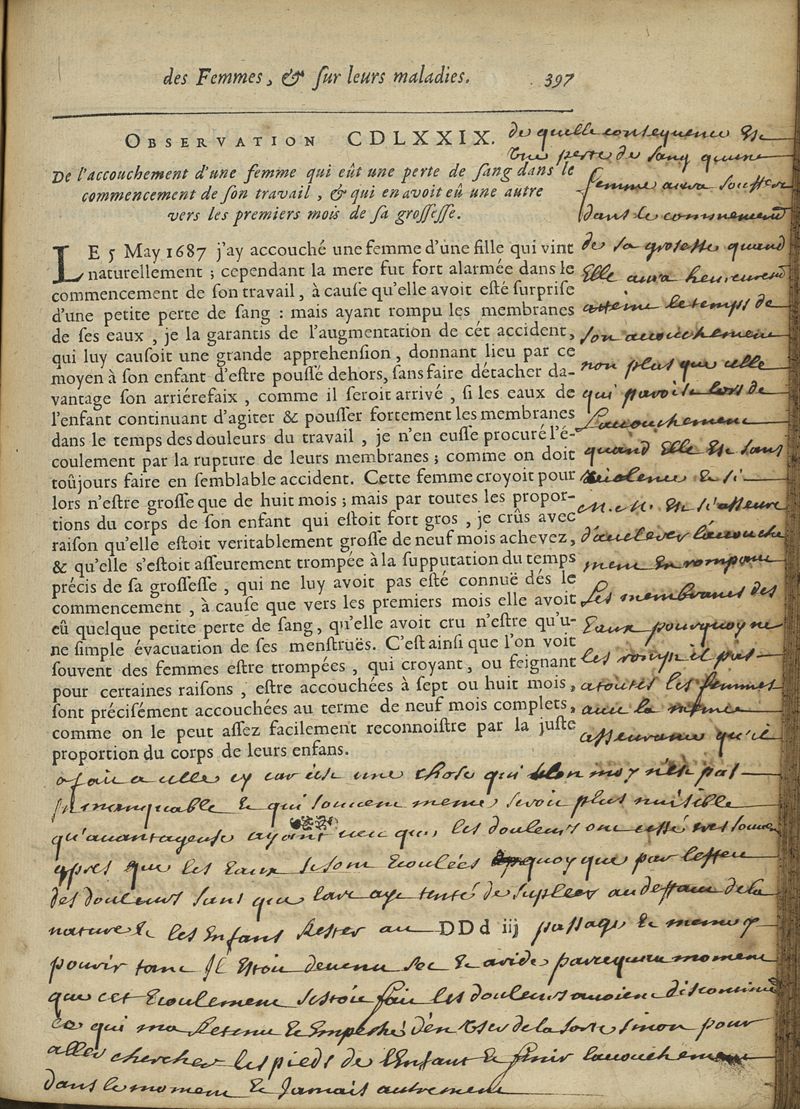 des Femmes, & sur leurs maladies. 397
OBSERVATION CDLXXIX.
De l'accouchement d'une femme qui eût une perte de sang dans le
commencement de son travail, & qui en avoit eû une autre
vers les premiers mois de sa grossesse.
LE 5 May 1687 j'ay accouché une femme d'une fille qui vint
naturellement ; cependant la mere fut fort alarmée dans le
commencement de son travail, à cause qu'elle avoit esté surprise
d'une petite perte de sang : mais ayant rompu les membranes
de ses eaux, je la garantis de l'augmentation de cét accident,
qui luy causoit une grande apprehension, donnant lieu par ce
moyen à son enfant d'estre poussé dehors, sans faire détacher da-
vantage son arriérefaix, comme il seroit arrivé, si les eaux de
l'enfant continuant d'agiter & pousser fortement les membranes
dans le temps des douleurs du travail, je n'en eusse procuré l'é-
coulement par la rupture de leurs membranes ; comme on doit
toûjours faire en semblable accident. Cette femme croyoit pour
lors n'estre grosse que de huit mois ; mais par toutes les propor-
tions du corps de son enfant qui estoit fort gros, je crûs avec
raison qu'elle estoit veritablement grosse de neuf mois achevez,
& qu'elle s'estoit asseurement trompée à la supputation du temps
précis de sa grossesse, qui ne luy avoit pas esté connuë dés le
commencement, à cause que vers les premiers mois elle avoit
eû quelque petite perte de sang, qu'elle avoit cru n'estre qu'u-
ne simple évacuation de ses menstruës. C'est ainsi que l'on voit
souvent des femmes estre trompées, qui croyant, ou feignant
pour certaines raisons, estre accouchées à sept ou huit mois,
sont précisément accouchées au terme de neuf mois complets,
comme on le peut assez facilement reconnoistre par la juste
proportion du corps de leurs enfans.
de quelle consequence Est
Une perte de sang quune
femme aura souffert
dans le commencement
de sa grosesse quand
Elle aura heureusement
atteint le temps de
son accouchement
non plus que celle
qui paroit lors de
Laccouchement
quand Elle Est sans
violence & si
M. M. Est s'asseure
d'avancer laccouche
ment En rompant
Les membranes des
Eaux pourquoy ne
les rompt il pas
a toutes les femmes
avec la mesme
asseurance qu'il
a fait a celle cy car cest une chose qui selon moy n'est pas
immanquable & qui souvent meme seroit plus nuisible
qu'avantageuse ayant veu que les douleurs ont cessé souvent
apres que les Eaux se sont Ecoulées quoy que par leffect
des douleurs sans que lart aye tenté de supleer au deffaut de la
nature & les Enfans Rester au passage & meme y
DDd iij
pouvoir tant Il Estoit devenu sec & aride parcequau moment
que cet Ecoulement sestoit fait les douleurs avoient discontinué
ce qui ma Retenu & Empeché d'en User de la sorte sinon pour
aller chercher les pieds de l'Enfant & finir laccouchement
dans le moment & Jamais autrement